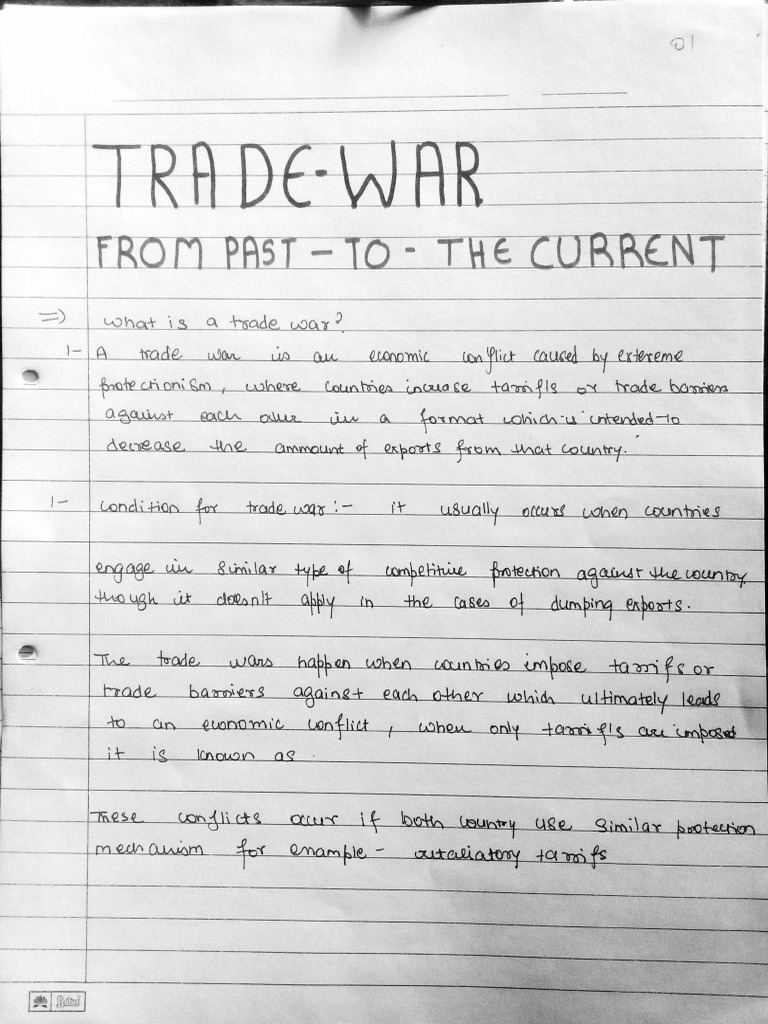 01
TRADE-WAR
FROM PAST - TO - THE CURRENT
=) What is a trade war?
1- A trade war is an economic conflict caused by extereme
protectionism, where countries increase tarrifs or trade barriers
against each other in a format which is intended to
decrease the ammount of exports from that country.
1- condition for trade war :- it usually occurs when countries
engage in similar type of competitive protection against the country
though it doesn't apply in the cases of dumping exports.
The trade wars happen when countries impose tarrifs or
trade barriers against each other which ultimately leads
to an economic conflict, when only tarrifs are imposed
it is known as .
These conflicts occur if both country use similar protection
mechanism for enample - retaliatory tarrifs